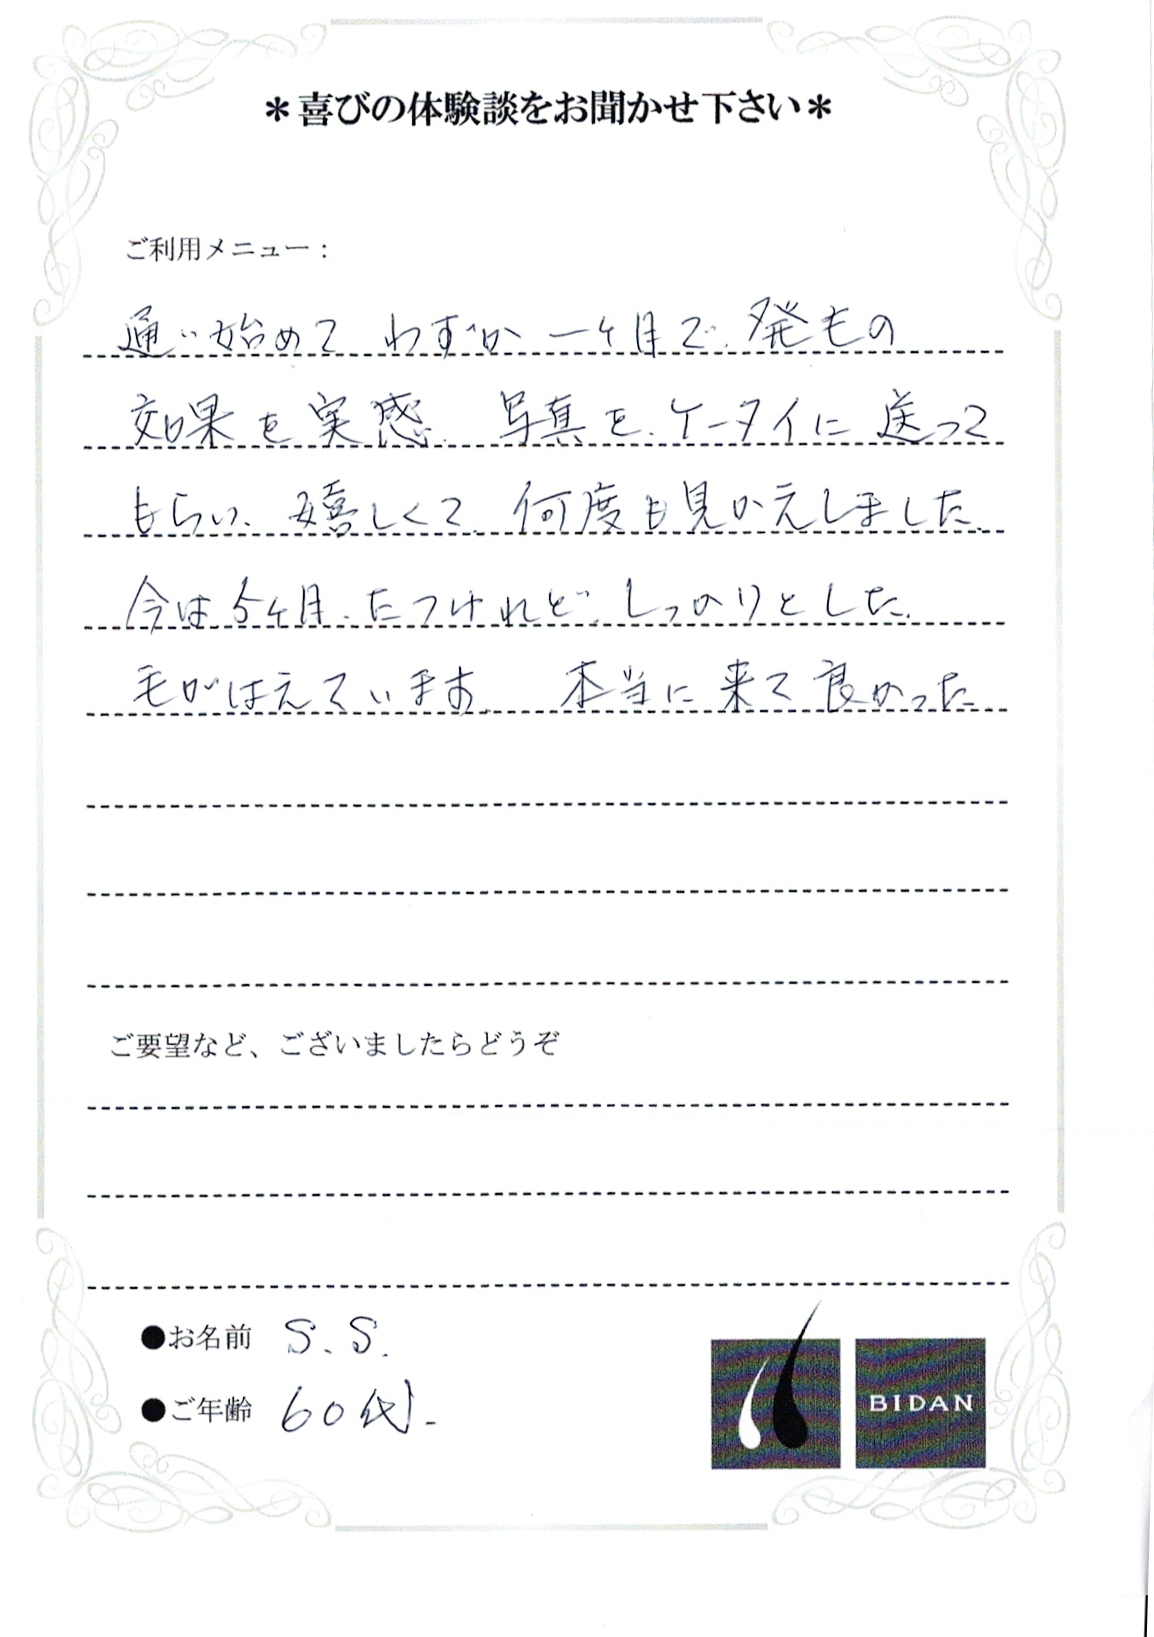 ＊喜びの体験談をお聞かせ下さい＊
ご利用メニュー：
通い始めて わずか 一ヶ月で、発もの
効果を実感、写真を、ケータイに 送って
もらい、嬉しくて、何度も見かえしました、
今は5ヶ月、たつけれど、しっかりとした、
毛がはえています、本当に来て良かった
ご要望など、ございましたらどうぞ
●お名前 S.S.
●ご年齢 60代-
BIDAN